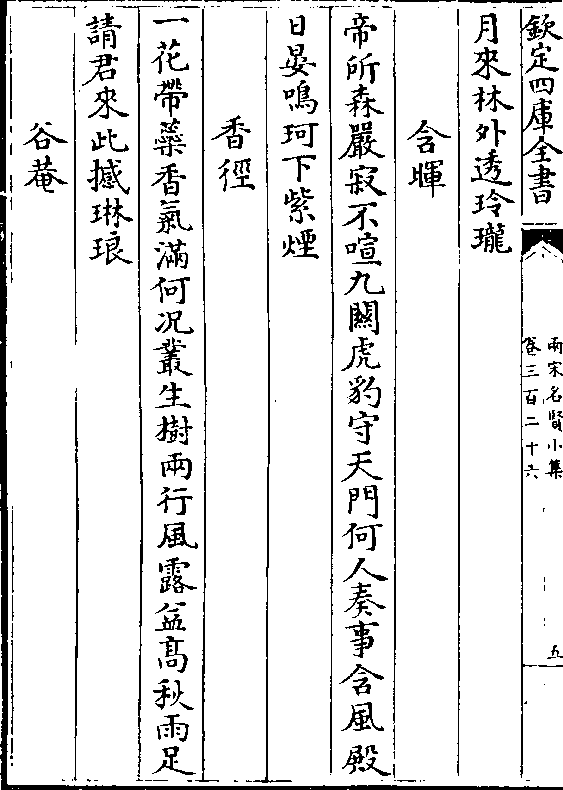 欽定四庫全書
兩宋名賢小集
卷三百二十六
五
月來林外透玲瓏
含暉
帝所森嚴寂不喧九關虎豹守天門何人奏事含風殿
日晏鳴珂下紫煙
香徑
一花帶蘂香氣滿何况叢生樹兩行風露益髙秋雨足
請君來此撼琳琅
谷菴